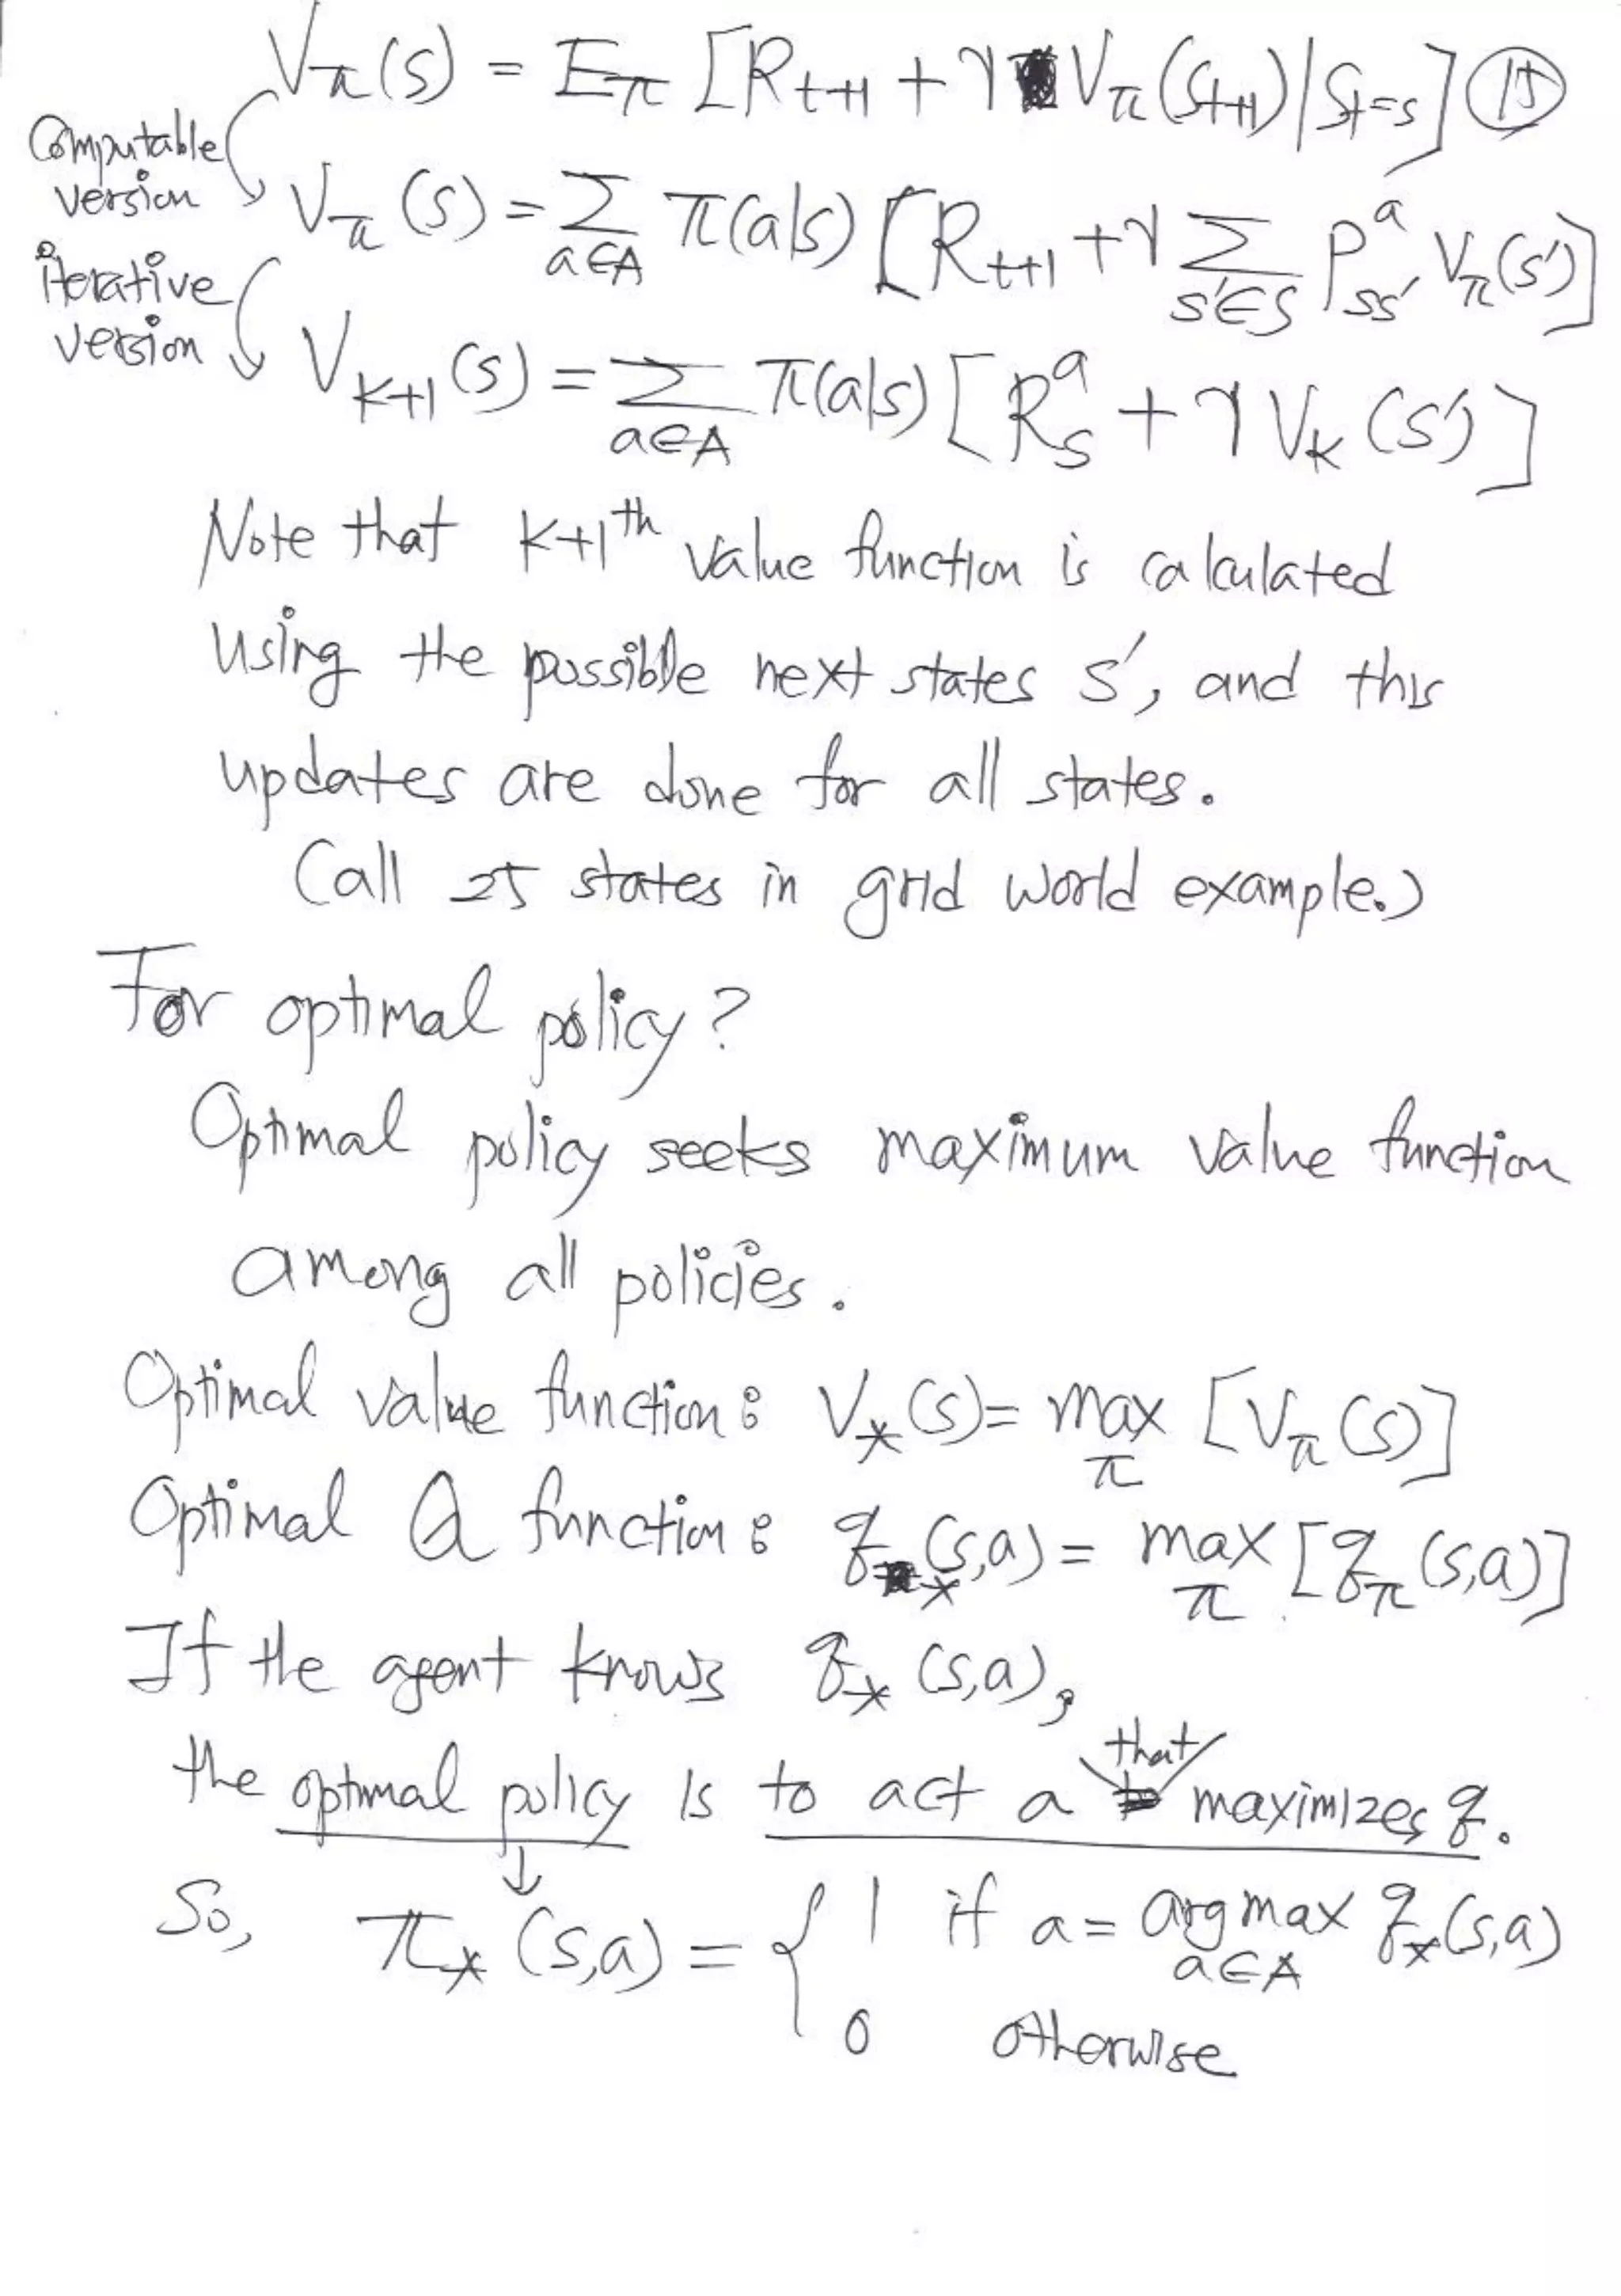 V_π(s) = E_π [R_{t+1} + γ V_π(S_{t+1}) | S_t=s] ⑮
Computable version
V_π(s) = Σ_{a∈A} π(a|s) [R_{t+1} + γ Σ_{s'∈S} P^a_{ss'} V_π(s')]
iterative version
V_{k+1}(s) = Σ_{a∈A} π(a|s) [R^a_s + γ V_k(s')]
Note that k+1^th value function is calculated
using the possible next states s', and this
updates are done for all states.
(all 25 states in grid world example.)
For optimal policy?
Optimal policy seeks maximum value function
among all policies.
Optimal value function: V_*(s) = max_π [V_π(s)]
Optimal Q function: q_*(s,a) = max_π [q_π(s,a)]
If the agent knows q_*(s,a),
the optimal policy is to act a that maximizes q.
↓
So, π_*(s,a) = { 1 if a = argmax_{a∈A} q_*(s,a)
0 otherwise